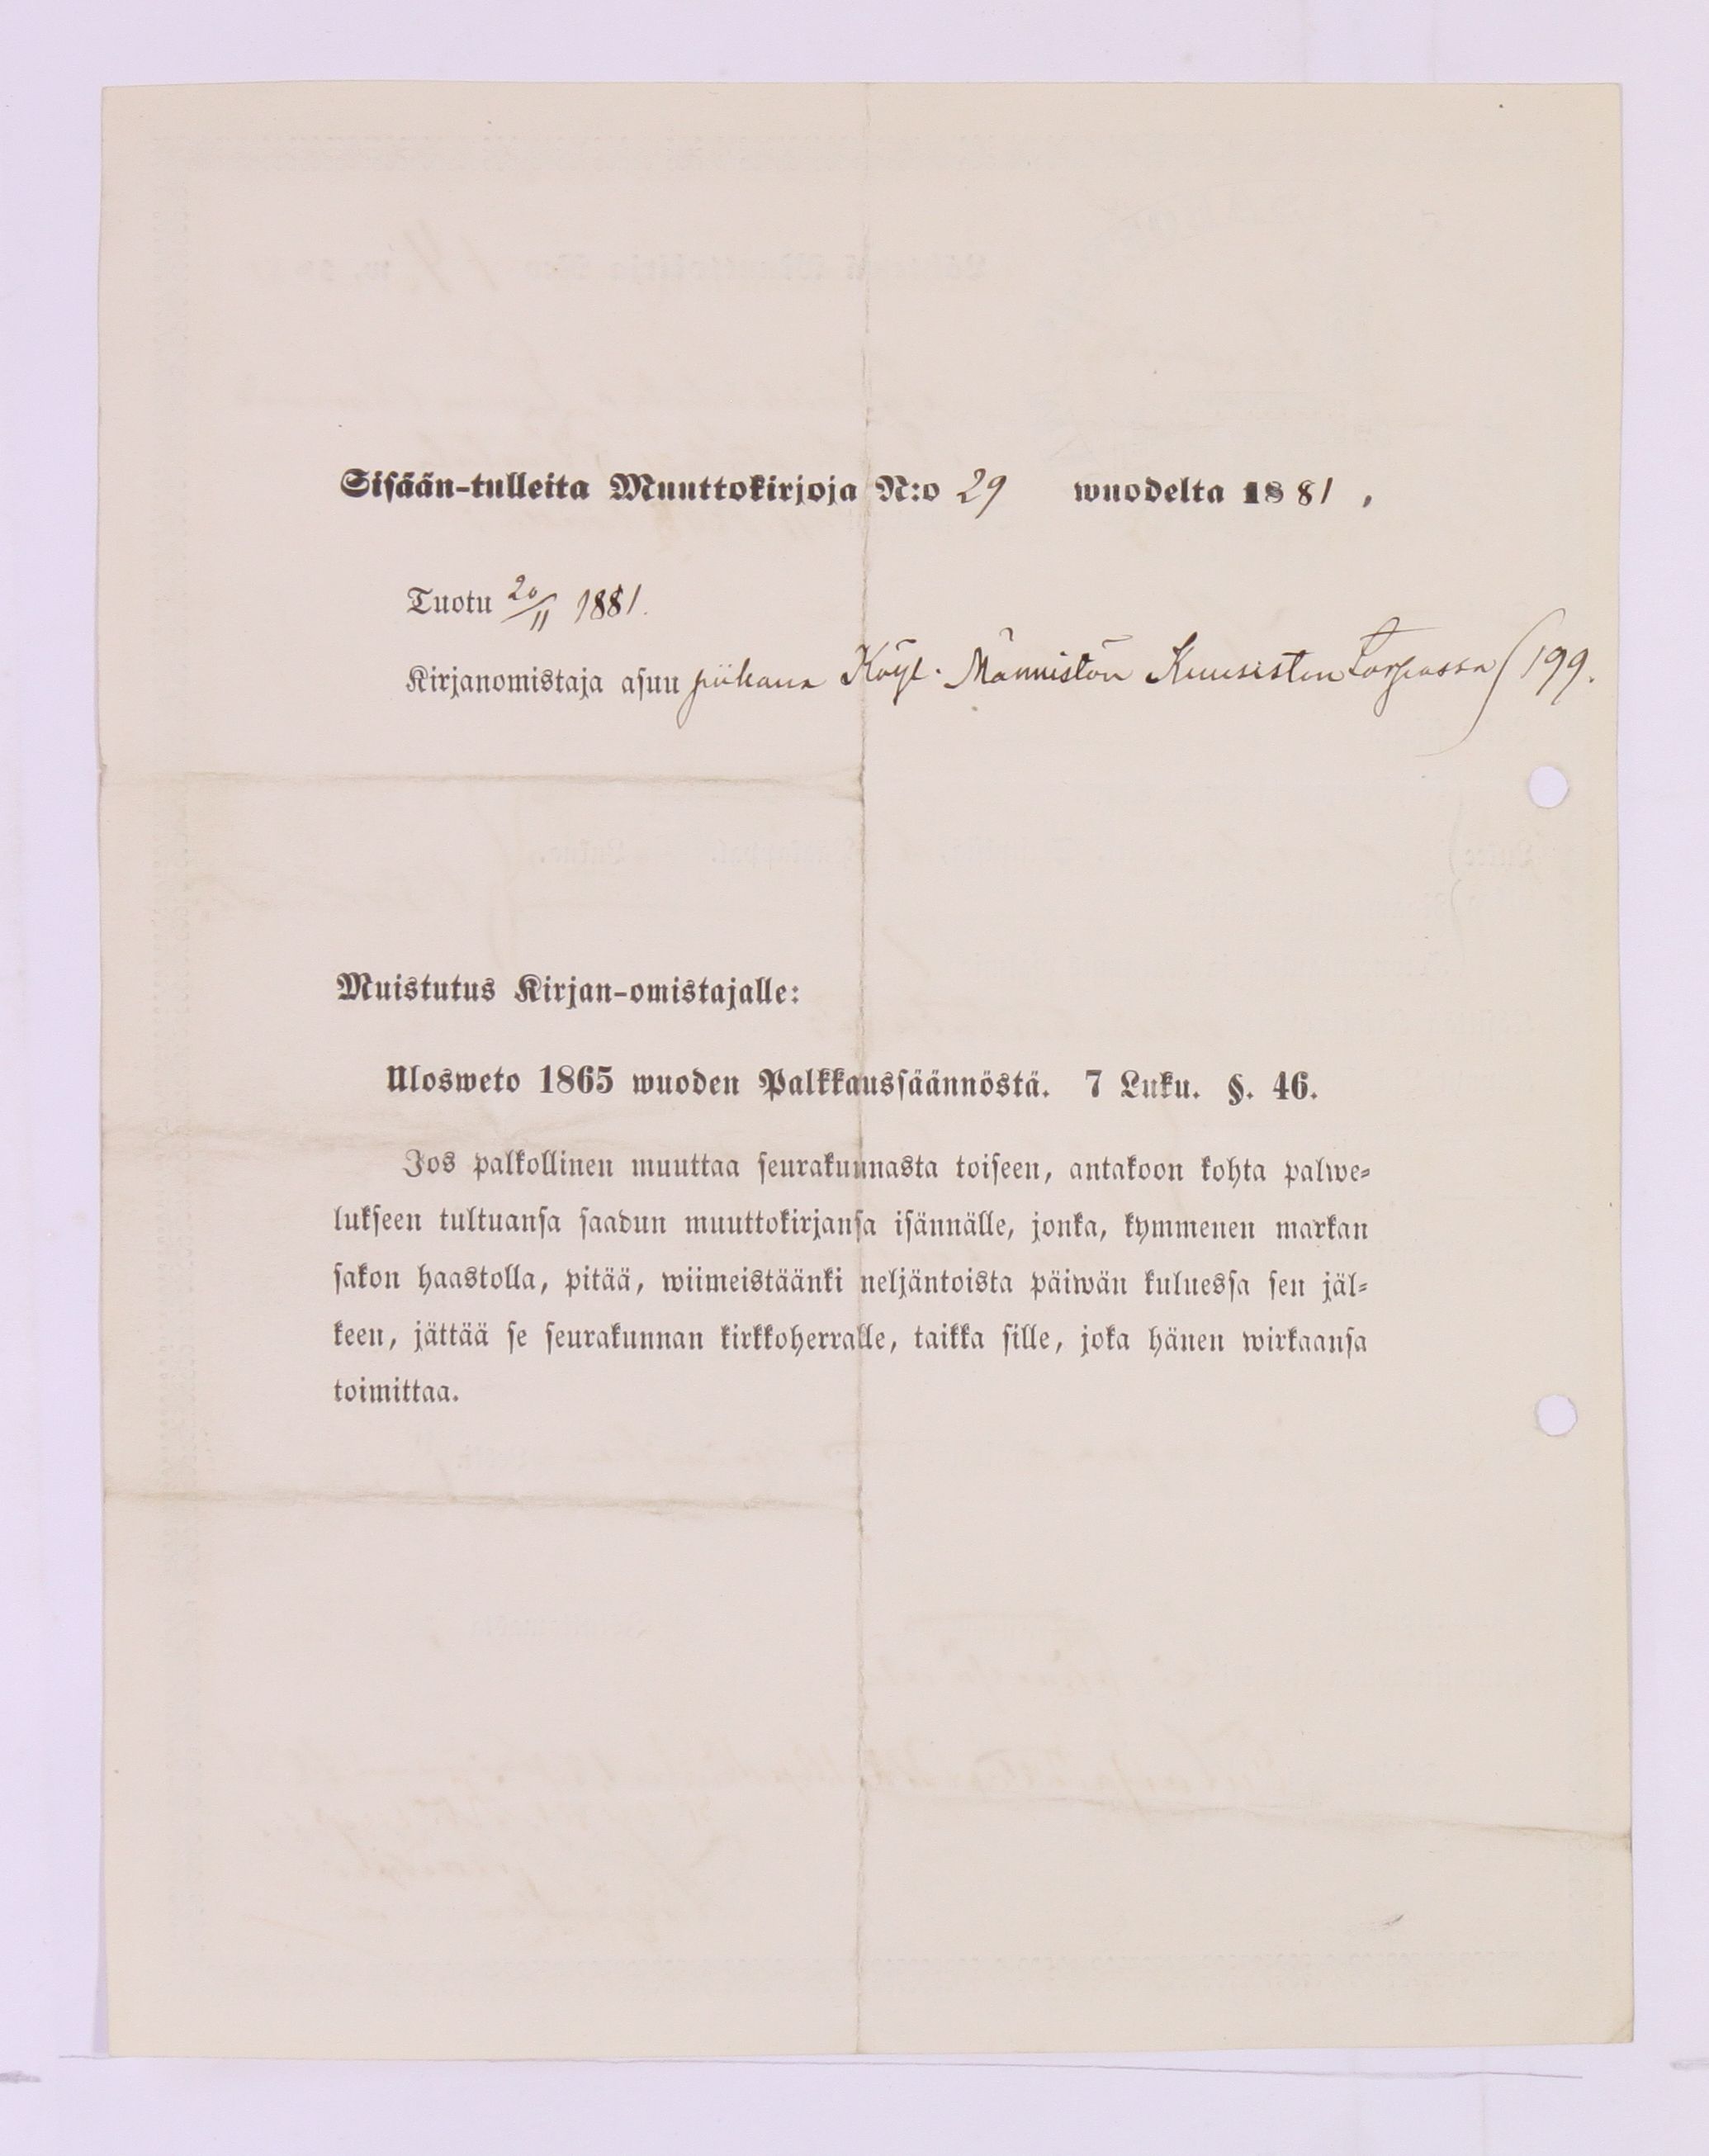 Sisään-tulleita Muuttokirjoja N:o 29 wuodelta 1881,
Tuotu 20/11 1881.
Kirjanomistaja asuu piikana Köyl. Männistön Kuusiston Torpassa (199.
Muistutus Kirjan-omistajalle:
Ulosweto 1865 wuoden Palkkaussäännöstä. 7 Luku. §. 46.
Jos palkollinen muuttaa seurakunnasta toiseen, antakoon kohta palwe-
lukseen tultuansa saadun muuttokirjansa isännälle, jonka, kymmenen markan
sakon haastolla, pitää, wiimeistäänki neljäntoista päiwän kuluessa sen jäl-
keen, jättää se seurakunnan kirkkoherralle, taikka sille, joka hänen wirkaansa
toimittaa.